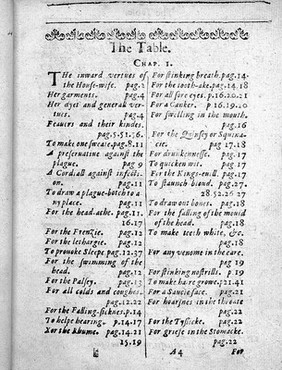 The Table.
CHAP. 1.
THe inward vertues of
the House-wife. pag.3
Her garments. pag.4
Her dyet and generall ver-
tues. pag.4
Feauers and their kindes,
pag.5.51.56.
To make one sweate.pag.8.11
A preseruatiue against the
plague. pag.9
A Cordiall against infecti-
on. pag.11
To draw a plague-botch a-
ny place. pag.11
For the head-ache. pag.11.
16.17
For the Frenzie. pag.12
For the lethargie. pag.12
To prouoke Sleepe. pag.12.37
For the swimming of the
head. pag.12
For the Palsey. pag.13
For all colds and coughes.
pag.12.22
For the Falling-sicknes.p.14
To helpe hearing. p.14.17
For the Rhume. pag.14.21
15.19
For stinking breath. pag.14.
For the tooth-ake.pag.14.18
For all sore eyes. p.16.20.21
For a Canker. p 16.19.20
For swelling in the mouth.
pag.16
For the Quinsey or Squina-
cie pag 17.18
For drunkennesse. pag.17
To quicken wit. pag.17
For the Kings-euill. pag.17
To staunch bloud. pag.27.
28.52.26 27
To draw out bones. pag.18
For the falling of the mould
of the head. pag.18
To make teeth white, &c.
pag.18
For any venome in the eare.
pag 19
For stinking nostrills. p.19
To make haire grow. p21.41
For a Saucie face. pag.21
For hoarsnes in the throate
pag.22
For the Tysicke. pag.22
For griefe in the Stomacke.
pag.22
A4 For